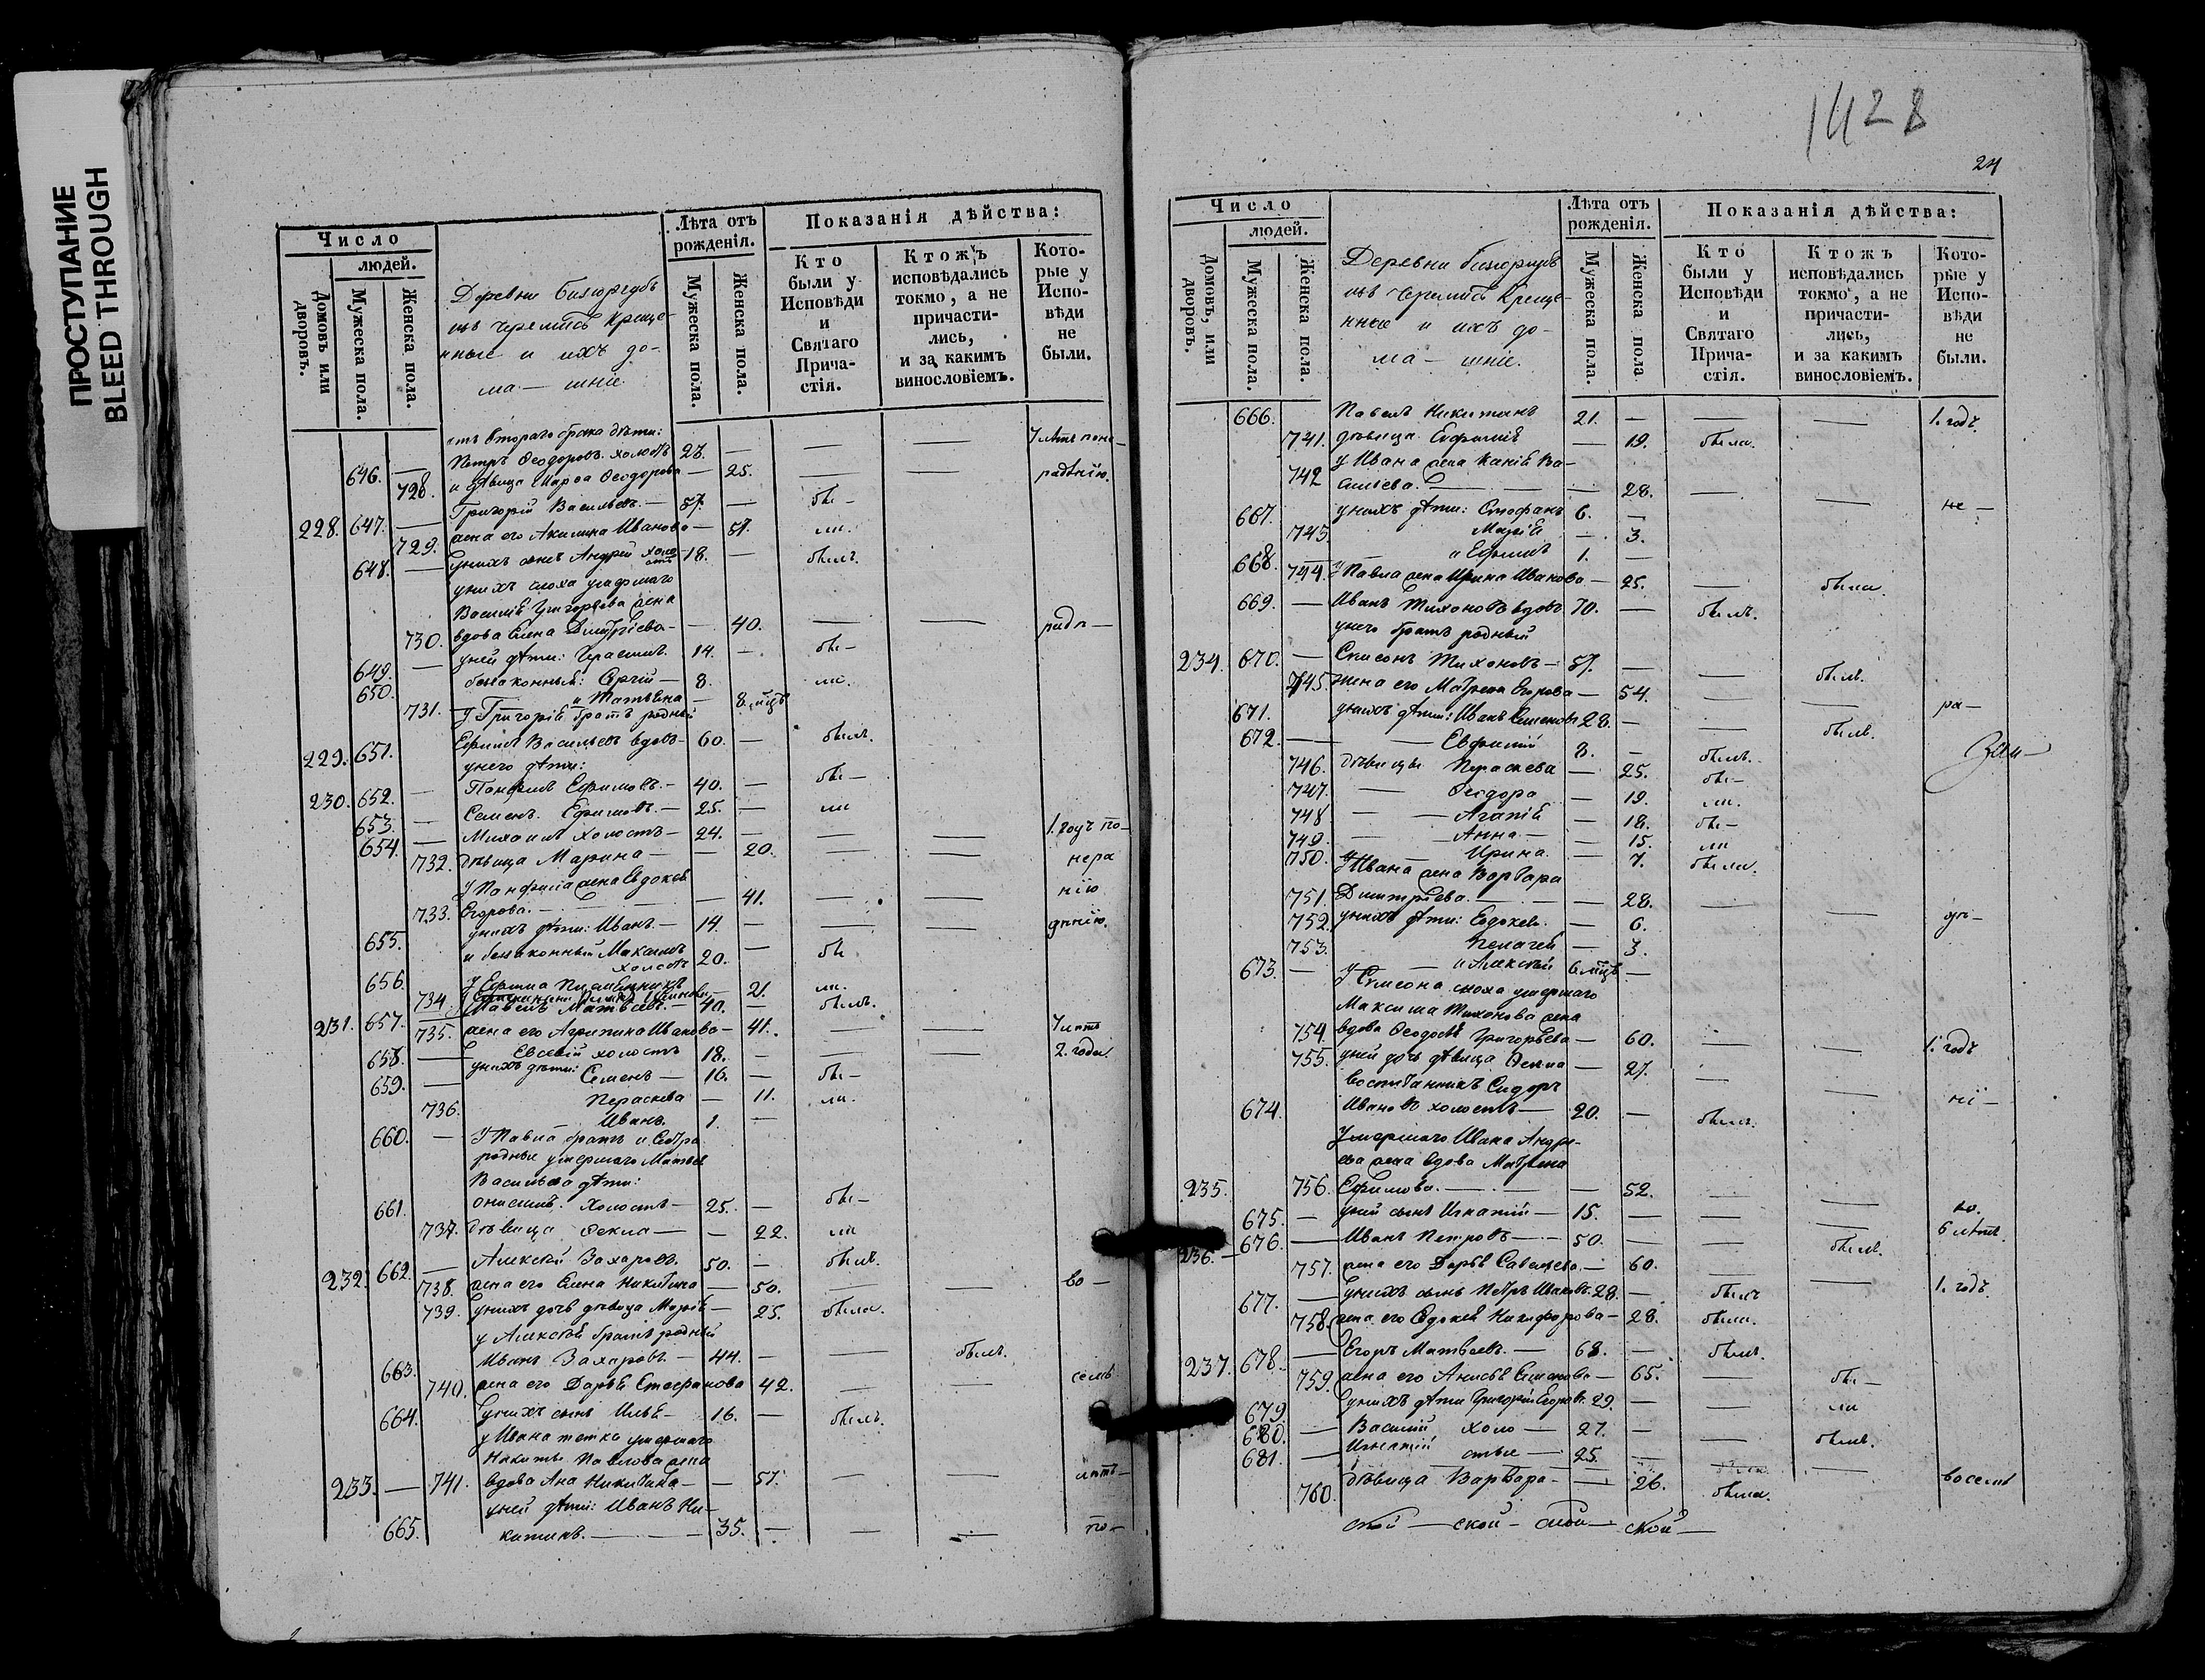 ПРОСТУПАНИЕ
BLEED THROUGH
Число
людей.
Домовъ или дворовъ.
Мужеска пола.
Женска пола.
Деревни
черемисъ креще-
нные и ихъ до-
ма — шніе
Лѣта отъ рожденія.
Мужеска пола.
Женска пола.
Показанія дѣйства:
Кто были у Исповѣди и Святаго Прича- стія.
Ктожъ исповѣдались токмо, а не причасти- лись, и за какимъ винословіемъ.
Кото- рые у Испо- вѣди не были.
отъ втораго брака дѣти:
646. — Петръ Ѳеодоровъ холостъ 28. — — — 7 лѣтъ поне-
728. и дѣвица Марѳа Ѳеодорова — 25. — радѣнію.
228. 647. — Григорій Васильевъ — 57. — бы —
729. жена его Акилина Иванова — 57. ли.
648. — у нихъ сынъ Андрей холо стъ 18. — былъ.
у нихъ сноха умершаго
Василія Григорьева жена
730. вдова Елена Димитріева — — 40. — — радѣ —
649. — у ней дѣти: Герасимъ 14. — бы —
650. беззаконный: Сергій — 8. ли.
731. — и Татьяна — 8 мцъ
У Григорія братъ родный
229. 651. Ефимъ Васильевъ вдовъ — 60. — былъ.
у него дѣти:
230. 652. — Панфилъ Ефимовъ. — 40. — бы —
653. — Семенъ Ефимовъ. — 25. — ли
654. — Михаилъ холостъ — 24. — — — 1. годъ по-
732. дѣвица Марина — — 20. — — нера
У Панфила жена Евдокія
733. Егорова. — — 41. — — нію
655. у нихъ дѣти: Иванъ — 14. — — —
656. и беззаконный Максимъ холостъ 20. — бы
У Ефима
734. — 21. ли.
231. 657. Павелъ Матвѣевъ. — 40. — былъ.
735. жена его Агрипина Иванова — 41. — — 7 лѣтъ
658. — у нихъ дѣти: Евсевій холостъ 18. — — — 2. года.
659. — Семенъ — 16. — бы —
736. Пераскева — 11. ли.
660. — Иванъ 1. —
У Павла братъ и сестра
родные умершаго Матвѣя
Васильева дѣти:
661. Онисимъ холостъ — 25. — бы —
737. дѣвица Ѳекла — — 22. ли
232. 662. — Алексѣй Захаровъ. 50. — былъ.
738. жена его Елена Никитина — 50. — — во —
739. у нихъ дочь дѣвица Марія — 25. была.
у Алексѣя братъ родный
663. Иванъ Захаровъ — 44. — — былъ.
740. жена его Дарья Стефанова 42. — — семь
664. у нихъ сынъ Илья — 16. — былъ.
у Ивана тетка умершаго
Никиты Павлова жена
233. — 741. вдова Ана Никитина — — 57. — — лѣтъ —
у ней дѣти: Иванъ Ни-
665. китинъ. — 35. — — — по —
1428
24
Число
людей.
Домовъ, или дворовъ.
Мужеска пола.
Женска пола.
Деревни
черемисъ креще-
нные и ихъ до-
ма — шніе.
Лѣта отъ рожденія.
Мужеска пола.
Женска пола
Показанія дѣйства:
Кто были у Исповѣди и Святаго Прича- стія.
Ктожъ исповѣдались токмо, а не причасти- лись, и за какимъ винословіемъ.
Кото- рые у Испо- вѣди не были.
666. Павелъ Никитинъ 21. — — — 1. годъ.
741. дѣвица Евфимія — 19. была.
У Ивана жена Ксенія Ва-
742 сильева. — — 28. — — не —
667. у нихъ дѣти: Стефанъ 6. —
743. Марія — 3.
668. — и Ефимъ 1. —
744. У Павла жена Ирина Иванова — 25. — была.
669. — Иванъ Тихоновъ вдовъ 70. — былъ.
у него братъ родный
234. 670. — Симеонъ Тихоновъ — 57. — — былъ.
745. жена его Матрена Егорова — 54. — — ра —
671. у нихъ дѣти: Иванъ Семеновъ 28. — — былъ.
672. — Евфимій 8. — былъ.
746. дѣвицы Пераскева — 25. бы —
747. — Ѳеодора — 19. ли.
748 — Агапія — 18. бы —
749. — Анна — — 15. ли
750. — Ирина. — 7. была.
У Ивана жена Варвара
751. Димитріева. — — 28. — —
752. у нихъ дѣти: Евдокея. — 6.
753. Пелагея — 3.
673. — — и Алексѣй 6 мцъ —
У Симеона сноха умершаго
Максима Тихонова жена
754. вдова Ѳеодосія Григорьева — 60. — — 1. годъ
755. у ней дочь дѣвица Ѳекла — 27. — — ні —
воспитанникъ Сидоръ
674. Ивановъ холостъ — 20. — былъ.
Умершаго Ивана Андре-
ева жена вдова Матрена
235. 756. Ефимова. — — 52. — — ю.
675. — у ней сынъ Игнатій — 15. — — — 6 лѣтъ.
236. — 676. — Иванъ Петровъ — 50. — — былъ.
757. жена его Дарья Савельева. — 60. — — 1. годъ.
677. — у нихъ сынъ Петръ Ивановъ. 28. — былъ
758. жена его Евдокія Никифорова — 28. была.
237. 678. — Егоръ Матвѣевъ. — 68. — былъ.
759. жена его Анисья Семенова — 65. — бы —
679. у нихъ дѣти Григорій Егоровъ. 29. — — ли
680. — Василій холо — 27. — — былъ.
681. — Игнатій стые — 25. —
760. дѣвица Варвара — — 26. была. восемь